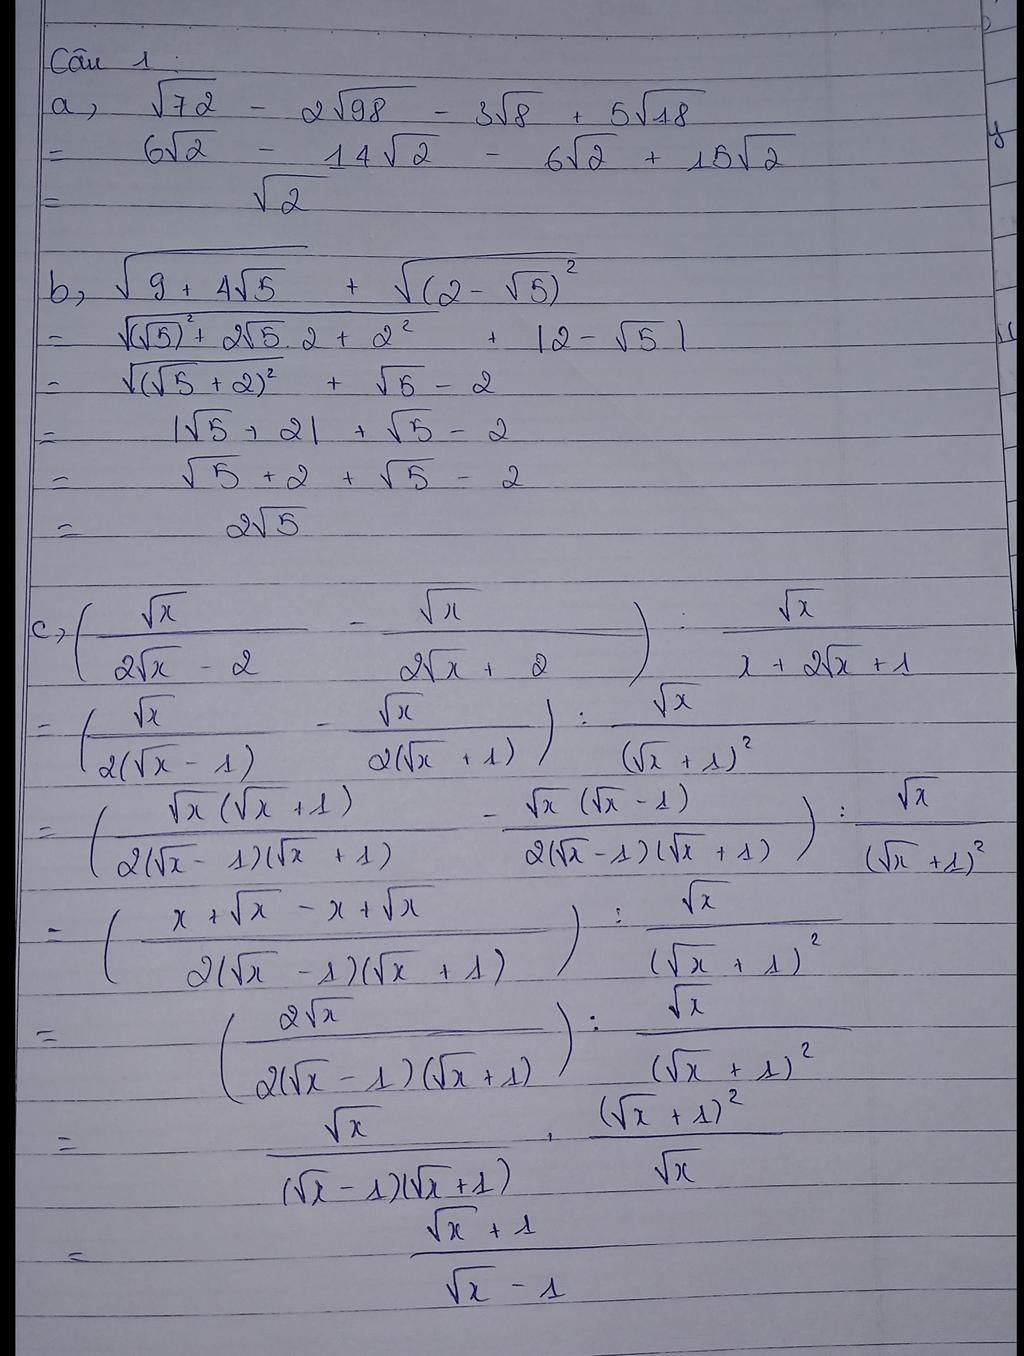 Câu 1.
a, √72 - 2√98 - 3√8 + 5√18
= 6√2 - 14√2 - 6√2 + 15√2
= √2
b, √(9 + 4√5) + √((2 - √5)²)
= √((√5)² + 2√5.2 + 2²) + |2 - √5|
= √((√5 + 2)²) + √5 - 2
= |√5 + 2| + √5 - 2
= √5 + 2 + √5 - 2
= 2√5
c, (√x / (2√x - 2) - √x / (2√x + 2)) : √x / (x + 2√x + 1)
= (√x / 2(√x - 1) - √x / 2(√x + 1)) : √x / (√x + 1)²
= (√x(√x + 1) / 2(√x - 1)(√x + 1) - √x(√x - 1) / 2(√x - 1)(√x + 1)) : √x / (√x + 1)²
= ((x + √x - x + √x) / 2(√x - 1)(√x + 1)) : √x / (√x + 1)²
= (2√x / 2(√x - 1)(√x + 1)) : √x / (√x + 1)²
= √x / (√x - 1)(√x + 1) . (√x + 1)² / √x
= (√x + 1) / (√x - 1)